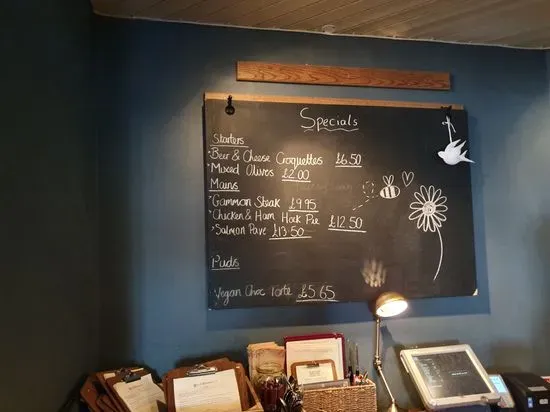 Specials
Starters
Beer & Cheese Croquettes £6.50
Mixed Olives £2.00
Mains
Gammon Steak £9.95
Chicken & Ham Hock Pie £12.50
Salmon Pave £13.50
Puds
Vegan Choc Torte £5.65